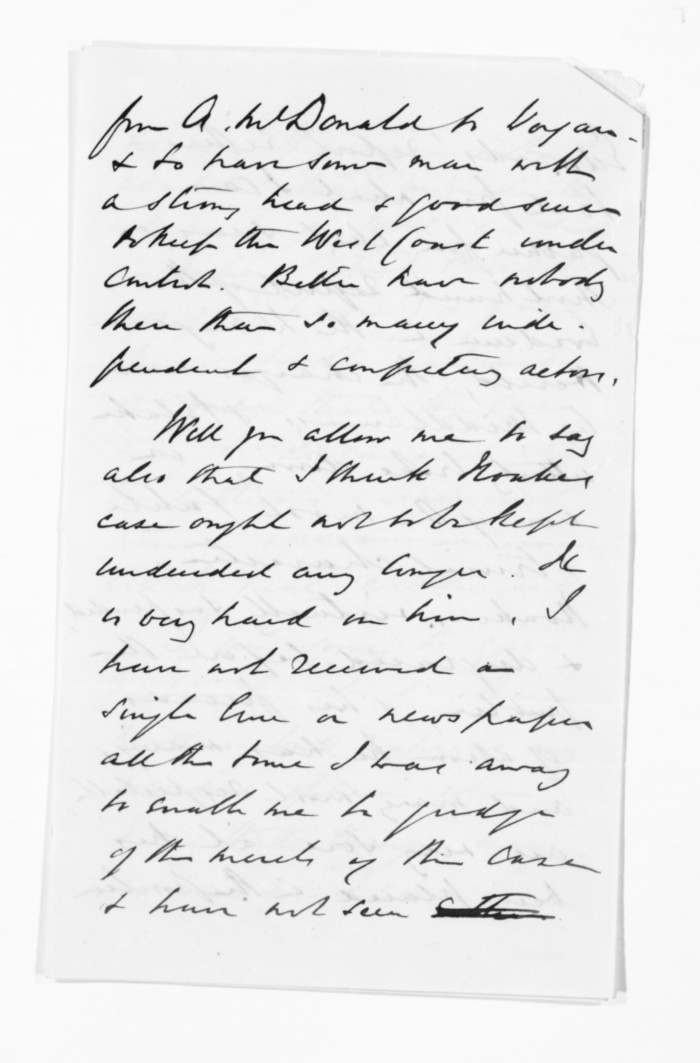 from A. McDonald to Vogan -
& to have some man with
a strong head & good sense
to keep the West Coast under
control. Better have nobody
there than so many inde-
pendent & competing actors.
Will you allow me to say
also that I think Noakes
case ought not to be kept
undecided any longer. It
is very hard on him. I
have not received a
single line or newspaper
all the time I was away
to enable me to judge
of the merits of the case
& have not seen